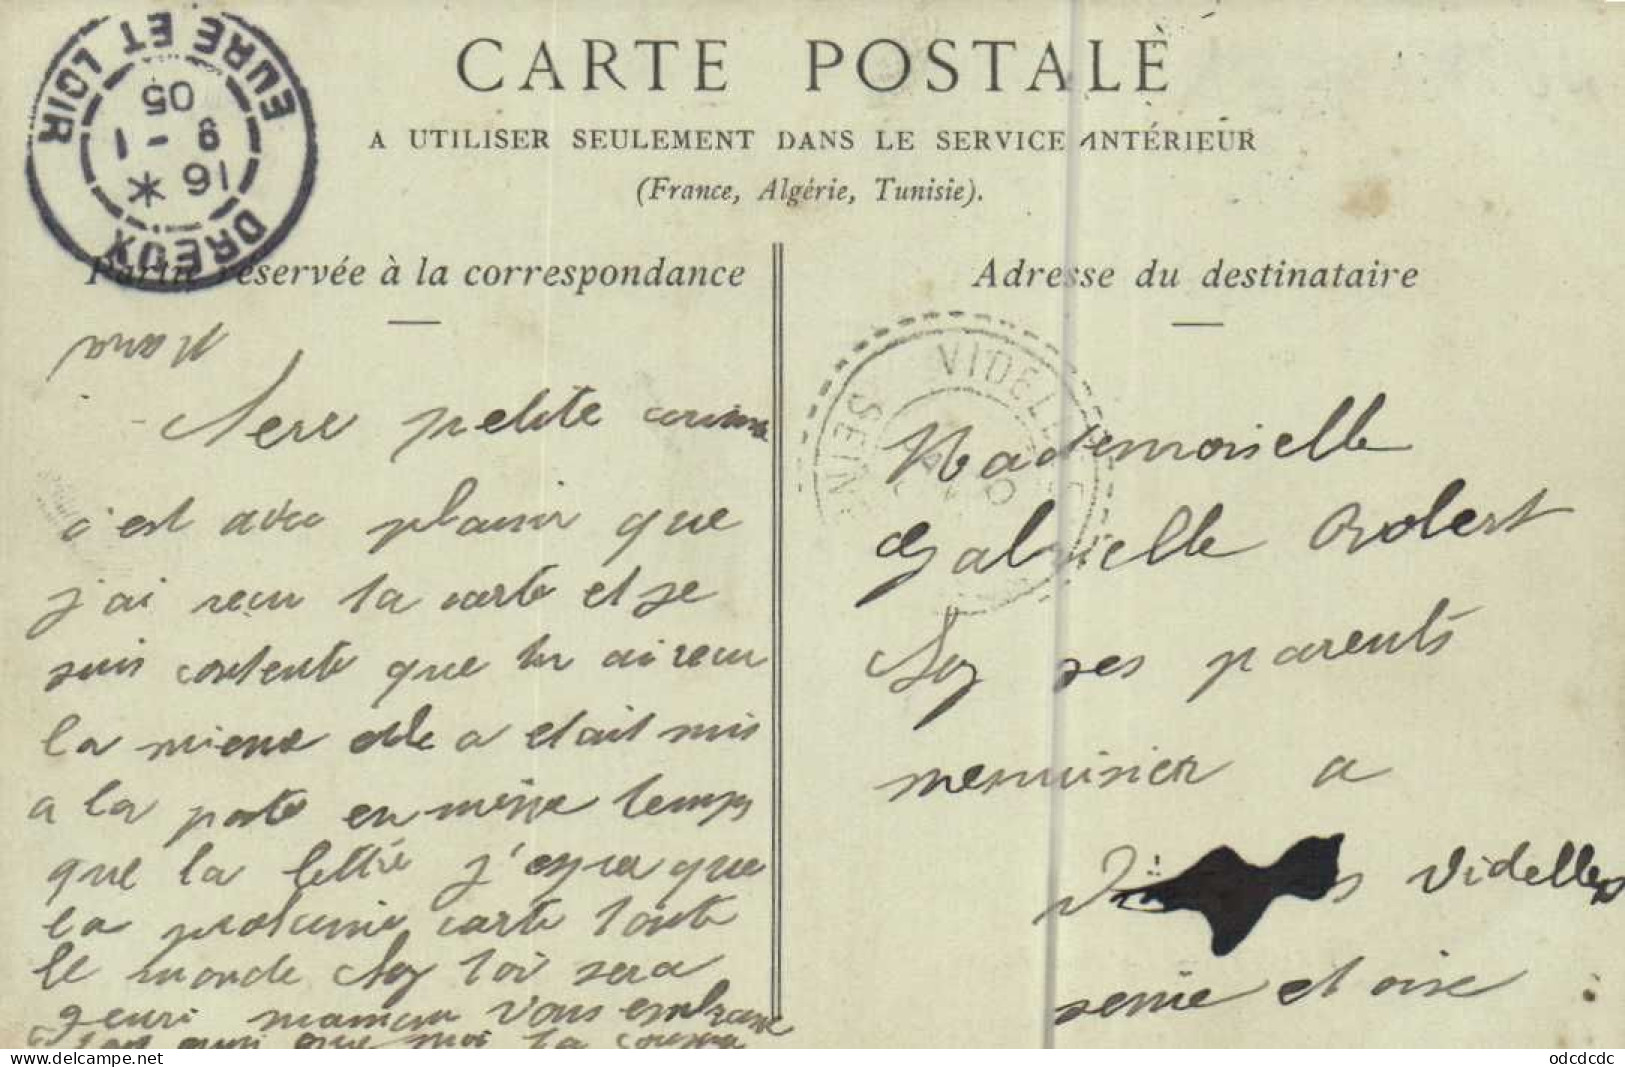 CARTE POSTALE
A UTILISER SEULEMENT DANS LE SERVICE INTÉRIEUR
(France, Algérie, Tunisie).
DREUX
EURE ET LOIR
16 * 9 - 1
05
Partie réservée à la correspondance
petite cousine
c'est avec plaisir que
j'ai recu ta carte et je
suis contente que tu ai recu
la mienne elle a etait mis
a la poste en meme temps
que la lettre j'espere que
la prochaine carte toute
le monde chez toi sera
gueri maman vous embrasse
que moi ta cousine
Adresse du destinataire
VIDELLES
SEINE
Mademoiselle
Gabrielle Robert
chez ses parents
menuisier a
Videlles
seine et oise
delcampe.net
odcdcdc